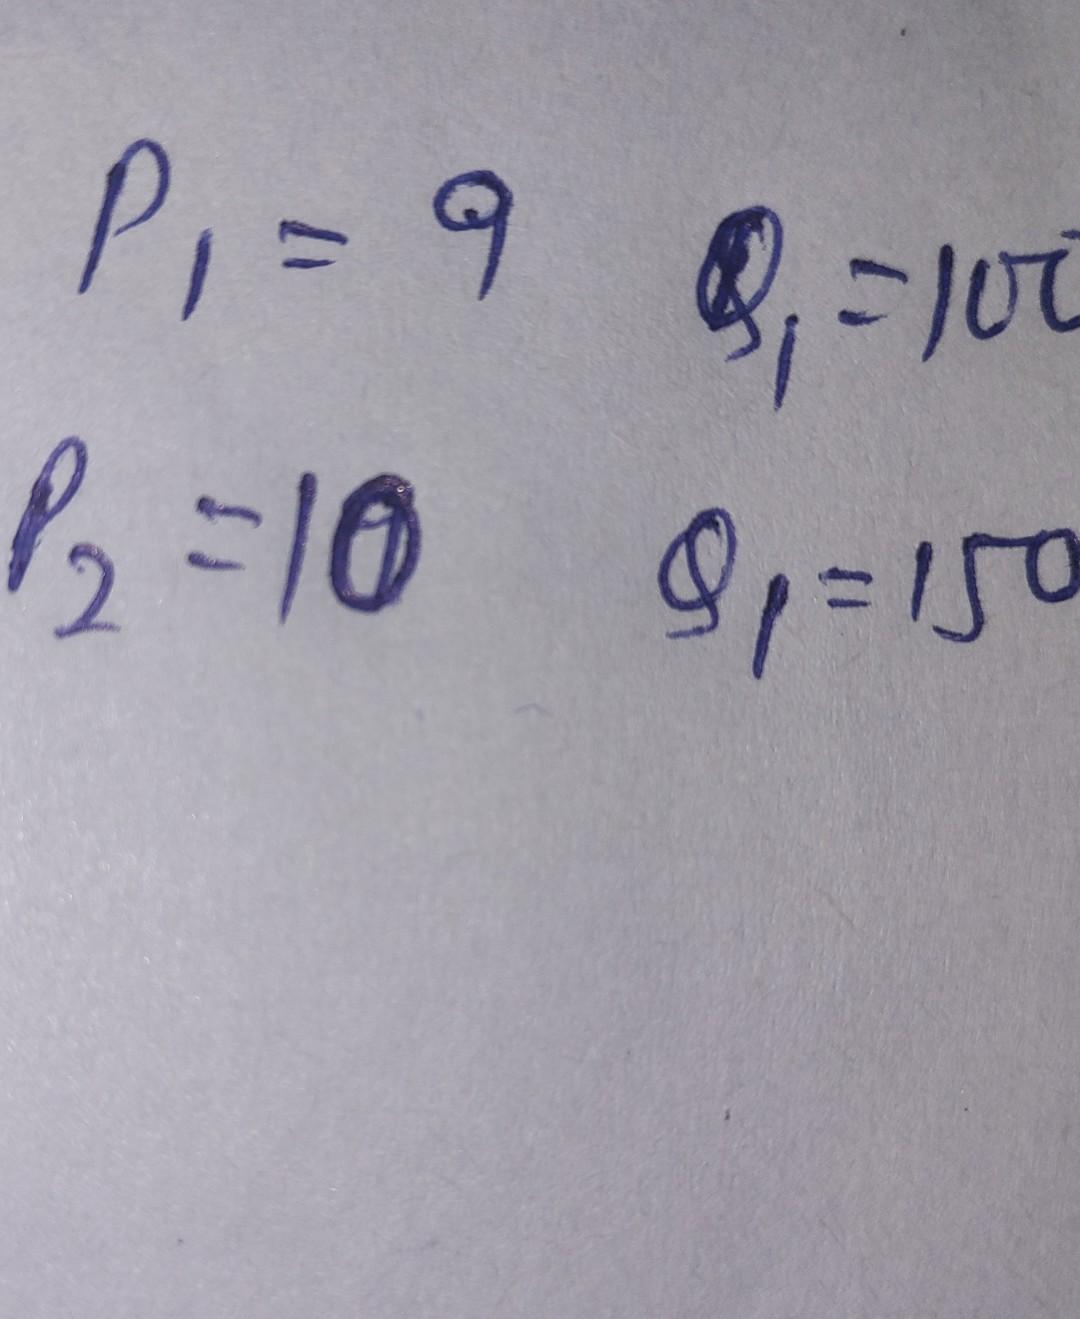 P₁ = 9 Q₁ = 100
P₂ = 10 Q₁ = 150